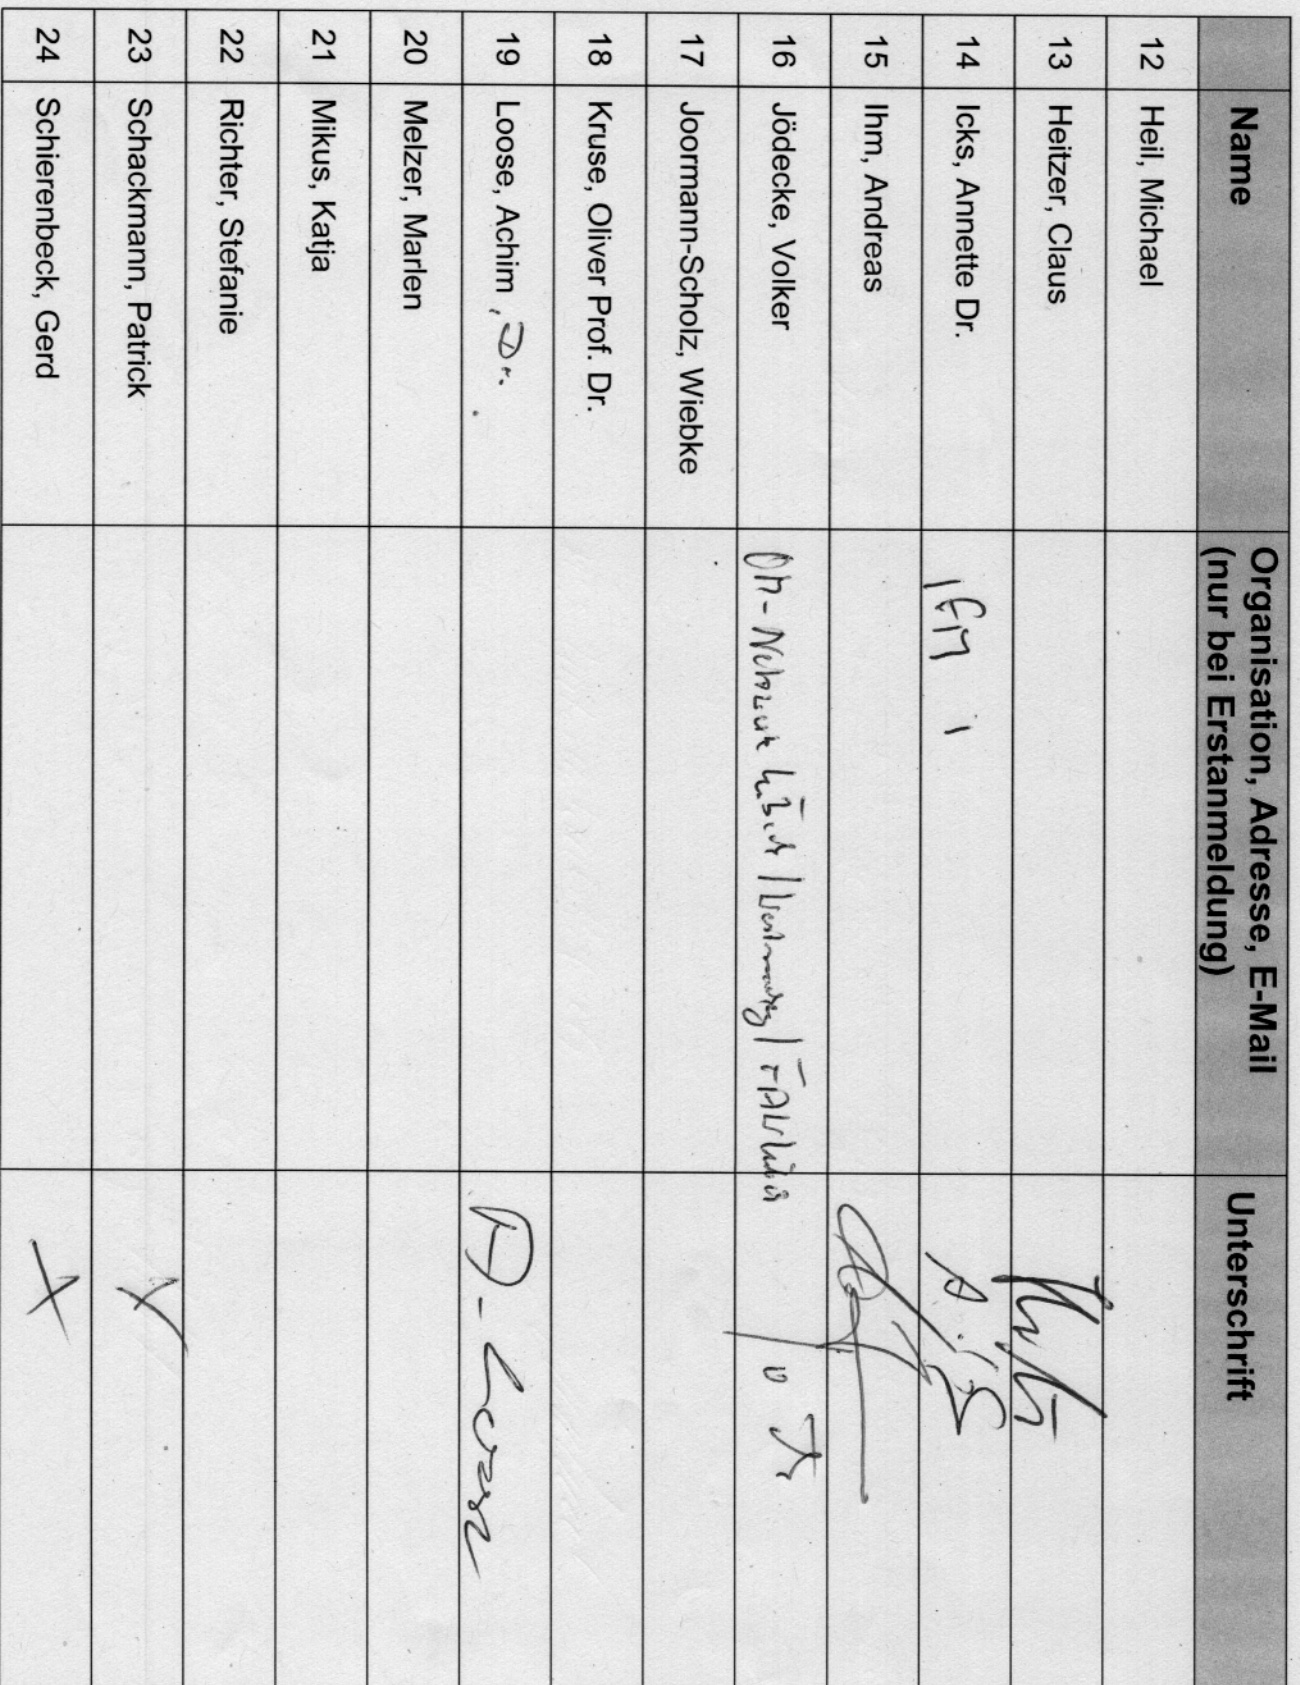 Name Organisation, Adresse, E-Mail Unterschrift
(nur bei Erstanmeldung)
12 Heil, Michael
13 Heitzer, Claus
14 Icks, Annette Dr. IfM
15 Ihm, Andreas
16 Jödecke, Volker
17 Joormann-Scholz, Wiebke
18 Kruse, Oliver Prof. Dr.
19 Loose, Achim, Dr. A. Loose
20 Melzer, Marlen
21 Mikus, Katja
22 Richter, Stefanie
23 Schackmann, Patrick X
24 Schierenbeck, Gerd X